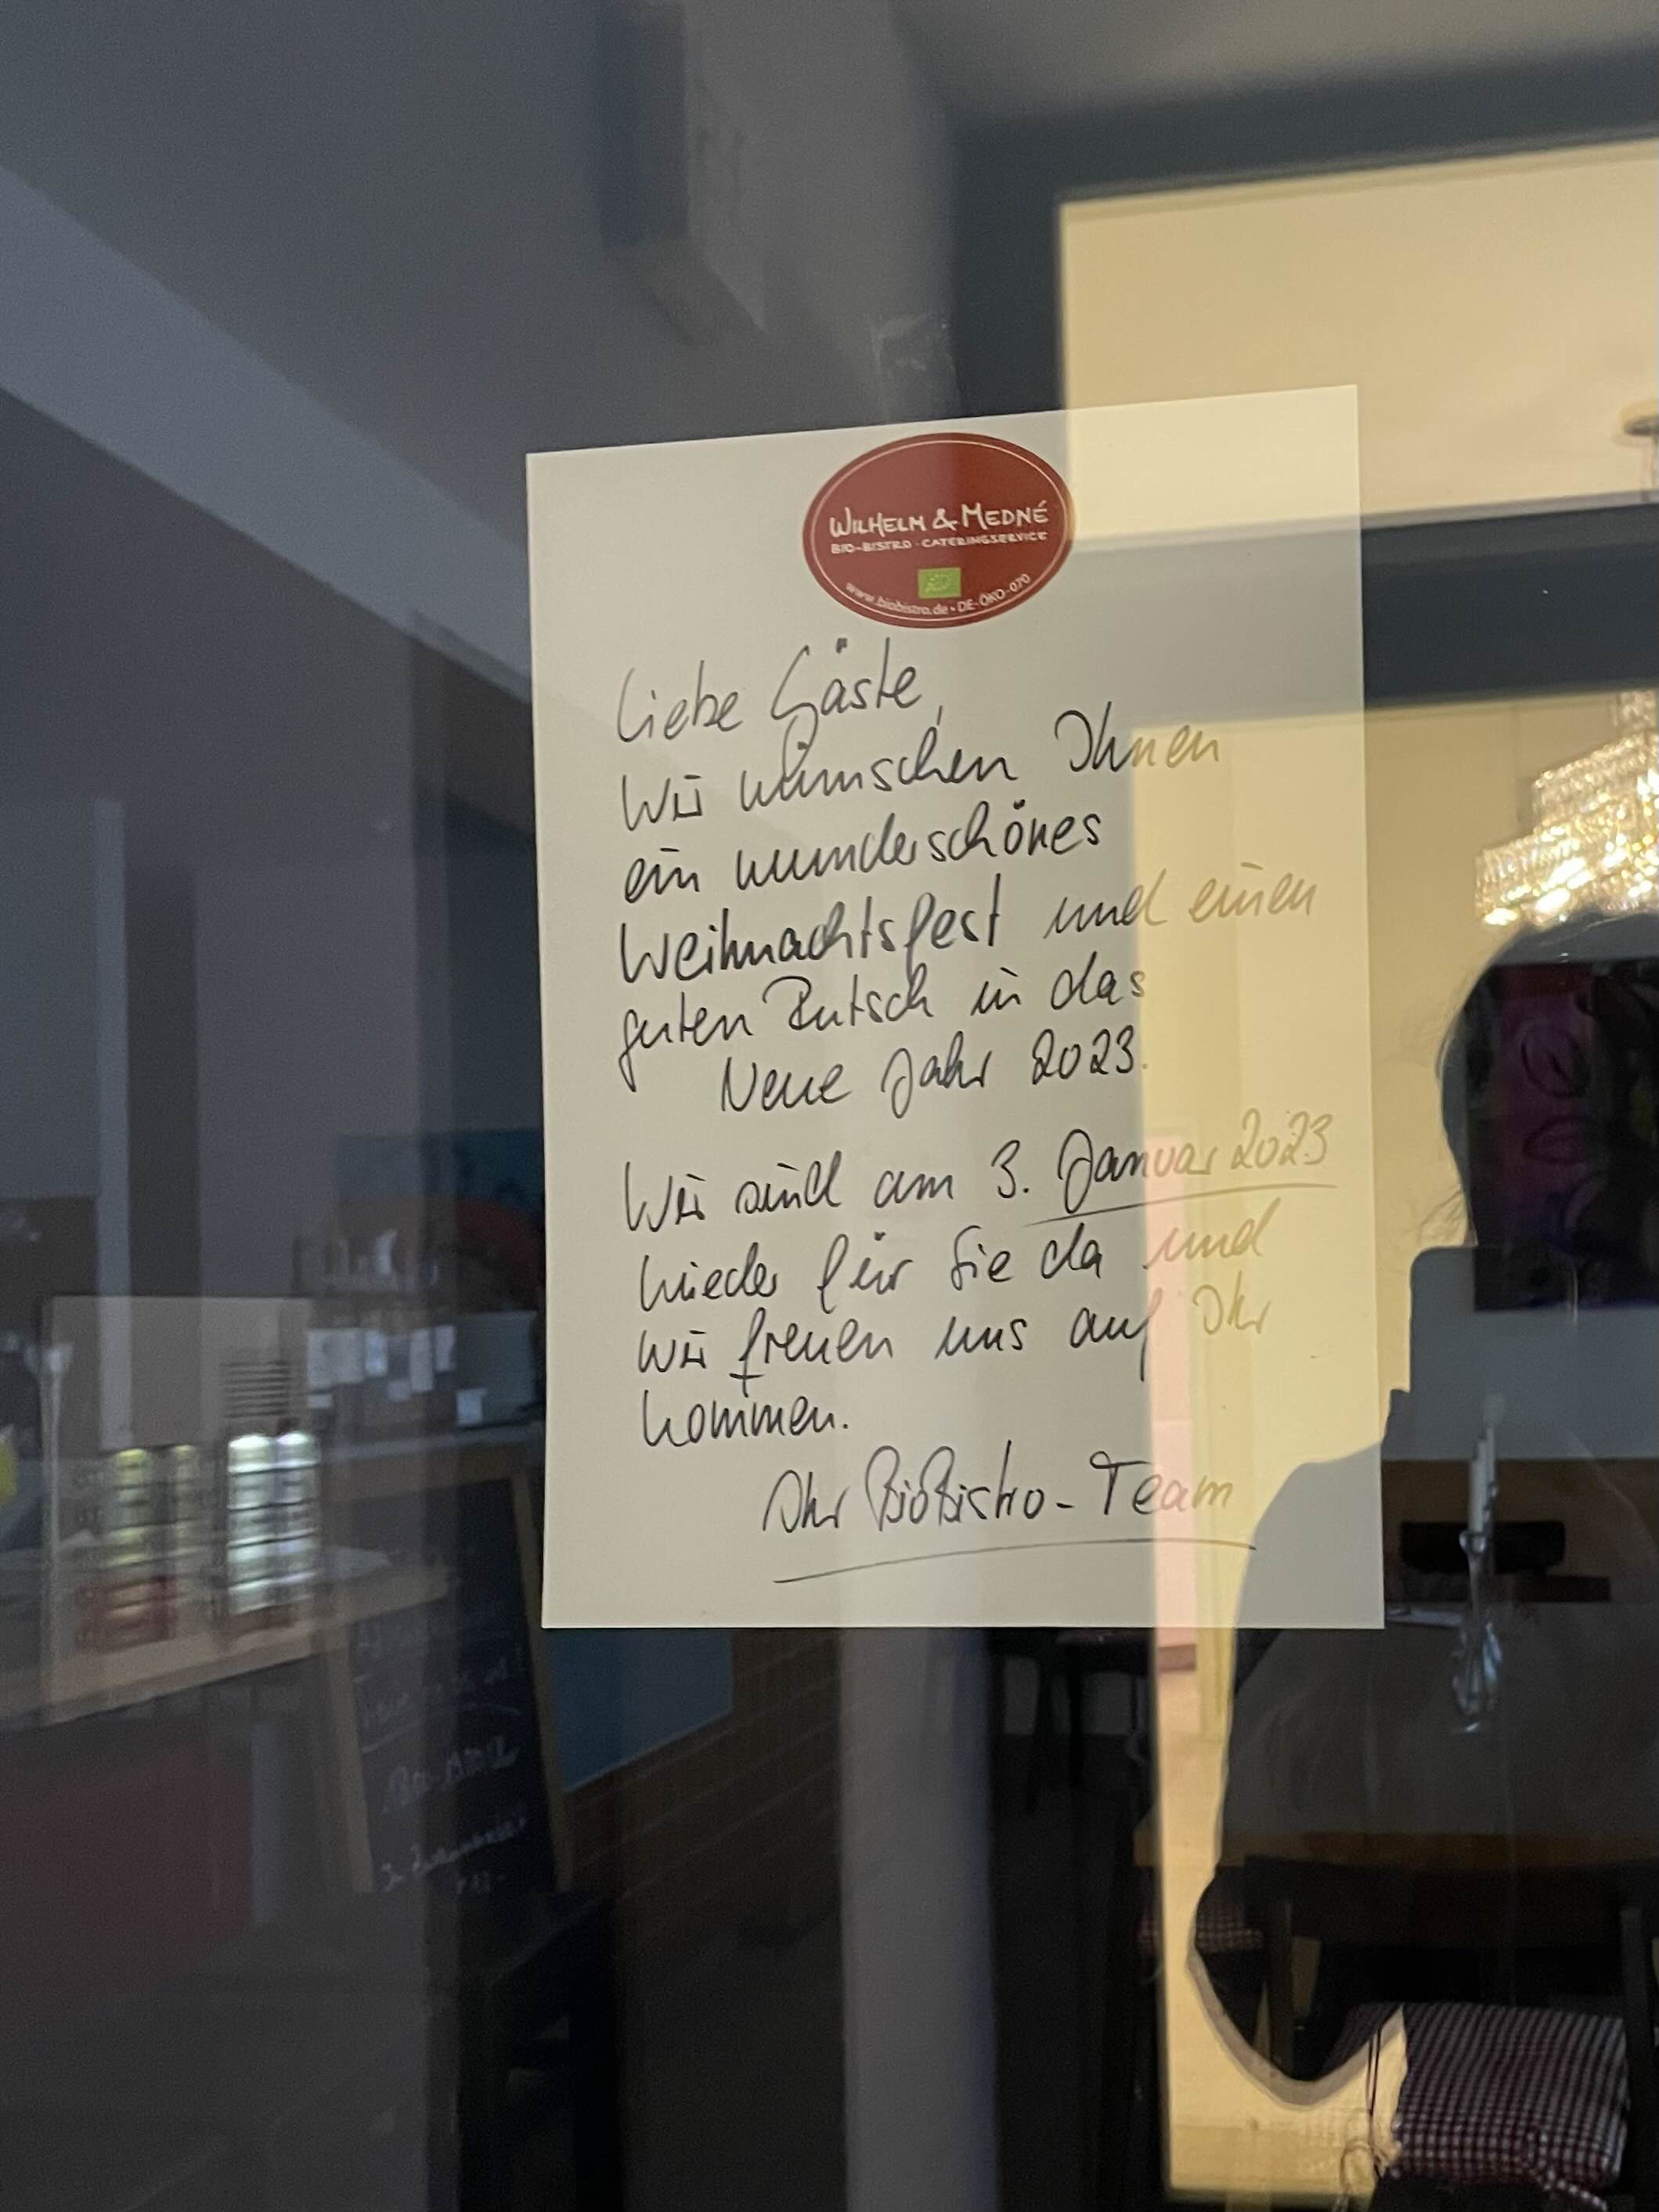 WILHELM & MEDNÉ
BIO-BISTRO · CATERINGSERVICE
www.biobistro.de • DE-ÖKO-070
Liebe Gäste,
Wir wünschen Ihnen
ein wunderschönes
Weihnachtsfest und einen
guten Rutsch in das
Neue Jahr 2023.
Wir sind am 3. Januar 2023
wieder für Sie da und
wir freuen uns auf Ihr
kommen.
Ihr BioBistro-Team